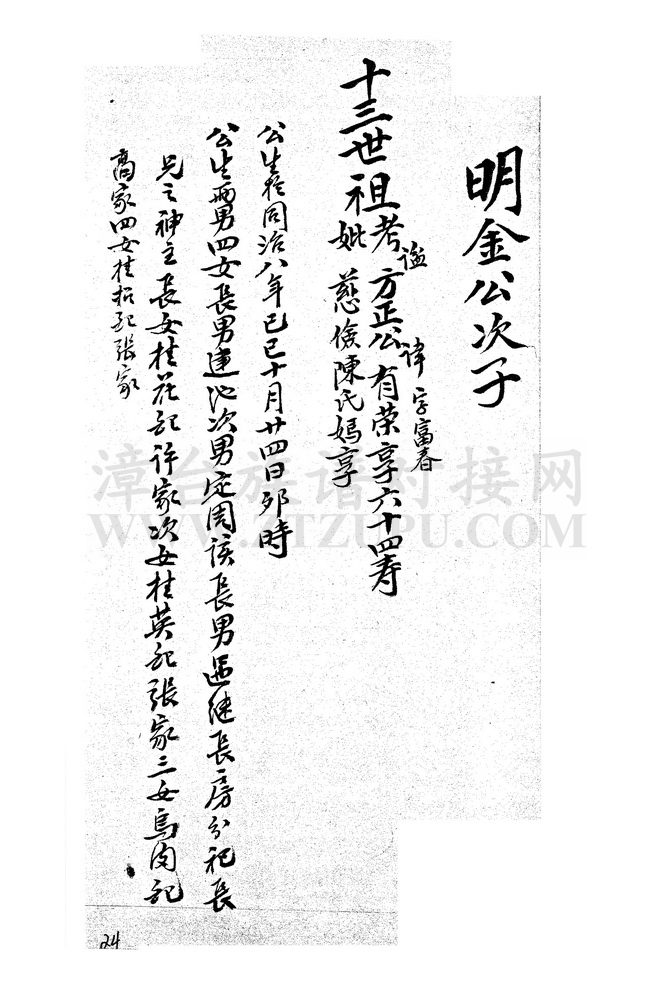 明金公次子
十三世祖考謚方正公諱有荣字富春享六十四寿
妣慈儉陳氏媽享
公生於同治八年己巳十月廿四日卯時
公生兩男四女長男連池次男定周該長男過继長房分祀長
兄之神主長女桂花配許家次女桂英配張家三女烏肉配
商家四女桂招配張家
漳台族谱对接网
WWW.ZTZUPU.COM
24